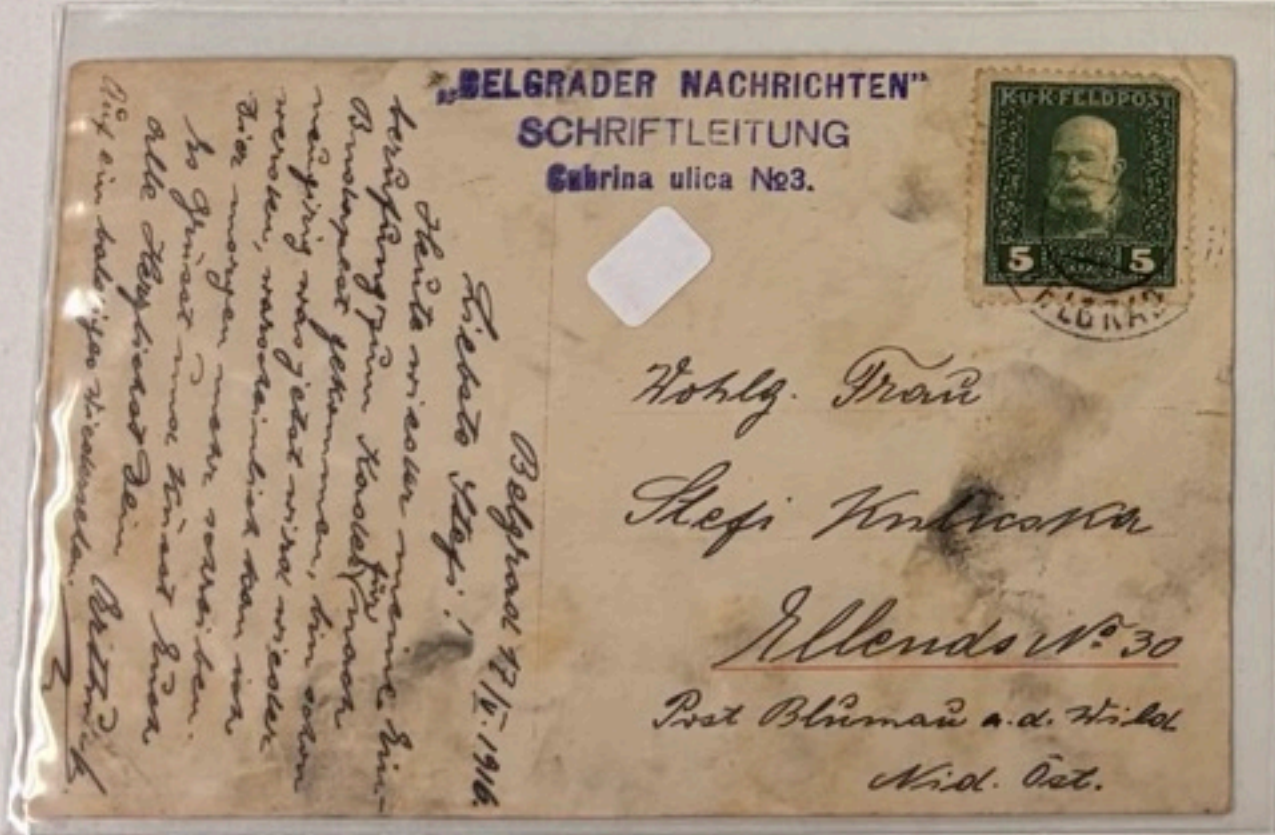 „BELGRADER NACHRICHTEN"
SCHRIFTLEITUNG
Cubrina ulica №3.
K.u.K. FELDPOST
5 5
Wohlg. Frau
Stefi
Ellends № 30
Post Blumau a.d. Wild
Nid. Öst.
Belgrad 17/V. 1916.
Liebste Stefi!
Heute wieder meine Ein-
berufung zum Kader für nach
Budapest gekommen, bin schon
neugirig was jetzt wird wieder
werden, warscheinlich kan ich
Dier morgen mehr schreiben
Es Grüsst und Küsst Euch
alle Herzlichst Dein
Auf ein baldiges Wiedersehen.